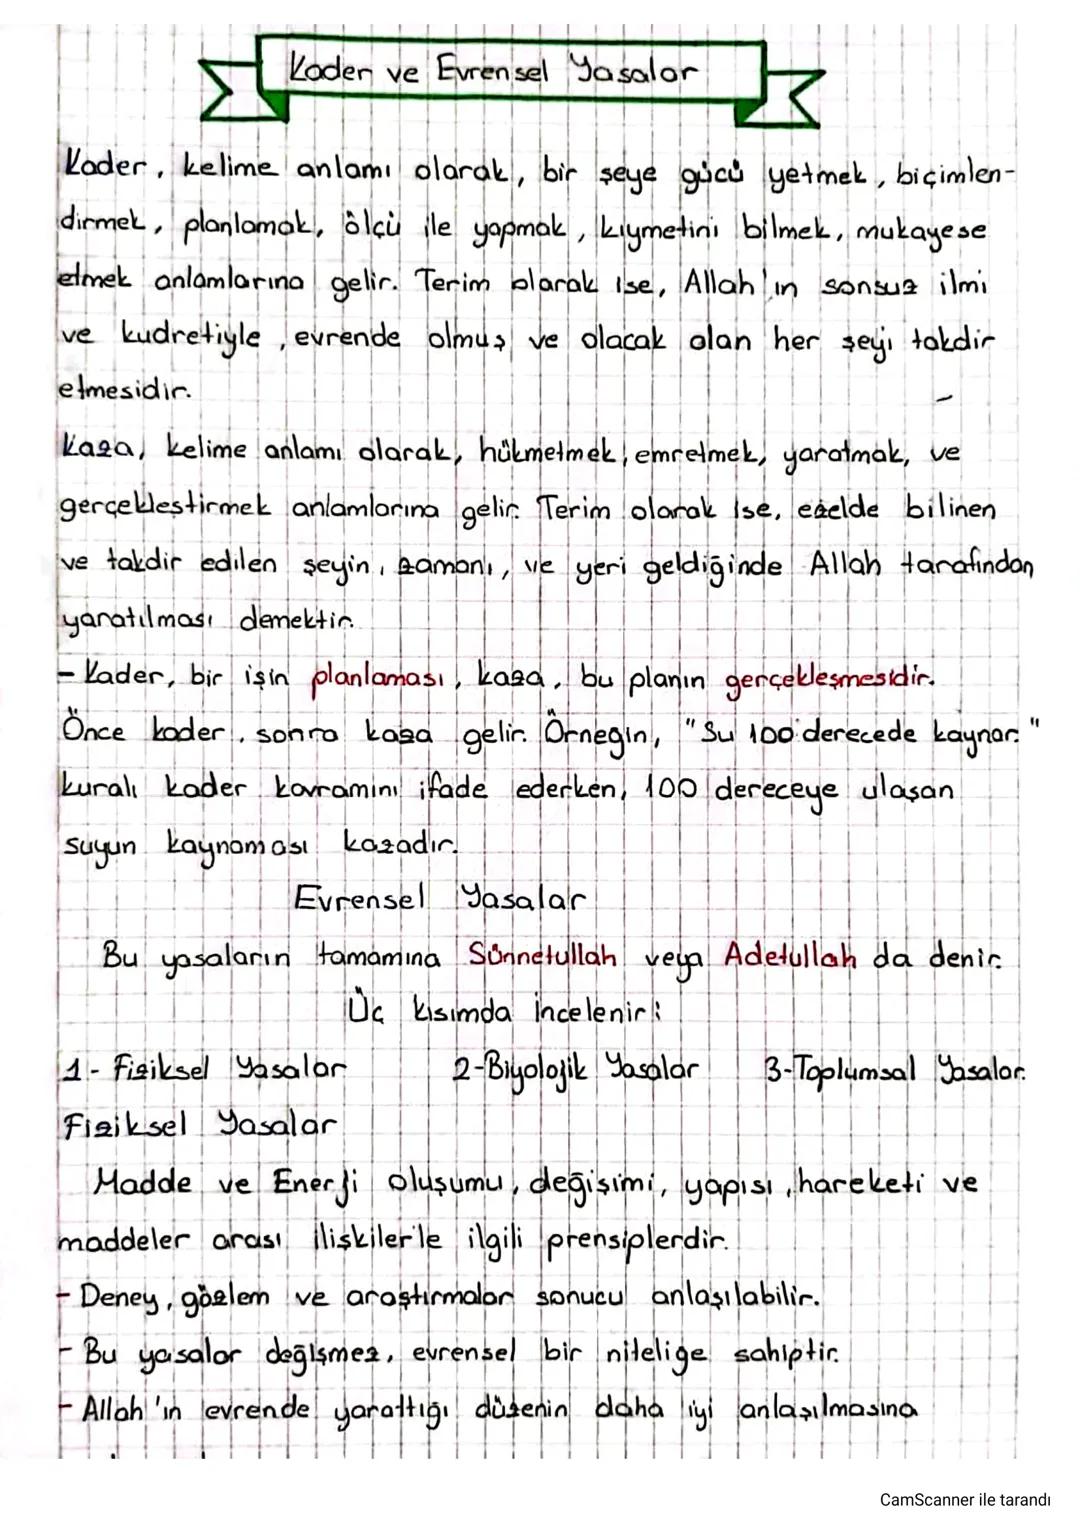 Kader ve Evrensel Yasalar
Kader, kelime anlamı olarak, bir şeye gücü yetmek, biçimlen-
dirmek, planlamak, ölçü ile yapmak, kıymetini bilmek, mukayese
etmek anlamlarına gelir. Terim olarak ise, Allah'ın sonsuz ilmi
ve kudretiyle, evrende olmuş ve olacak olan her şeyi takdir
etmesidir.
Kaza, kelime anlamı olarak, hükmetmek, emretmek, yaratmak, ve
gerçekleştirmek anlamlarına gelir. Terim olarak ise, ezelde bilinen
ve takdir edilen şeyin, zamanı, ve yeri geldiğinde Allah tarafından
yaratılması demektir.
- Kader, bir işin planlaması, kaza, bu planın gerçekleşmesidir.
Önce kader, sonra kaza gelir. Örneğin, "Su 100 derecede kaynar."
kuralı kader kavramını ifade ederken, 100 dereceye ulaşan
suyun kaynaması kazadır.
Evrensel Yasalar
Bu yasaların tamamına Sünnetullah veya Adetullah da denir.
Üç kısımda incelenir:
1- Fiziksel Yasalar 2-Biyolojik Yasalar 3-Toplumsal Yasalar.
Fiziksel Yasalar
Madde ve Enerji oluşumu, değişimi, yapısı, hareketi ve
maddeler arası ilişkilerle ilgili prensiplerdir.
- Deney, gözlem ve araştırmalar sonucu anlaşılabilir.
- Bu yasalar değişmez, evrensel bir niteliğe sahiptir.
- Allah'ın evrende yarattığı düzenin daha iyi anlaşılmasına
CamScanner ile tarandı